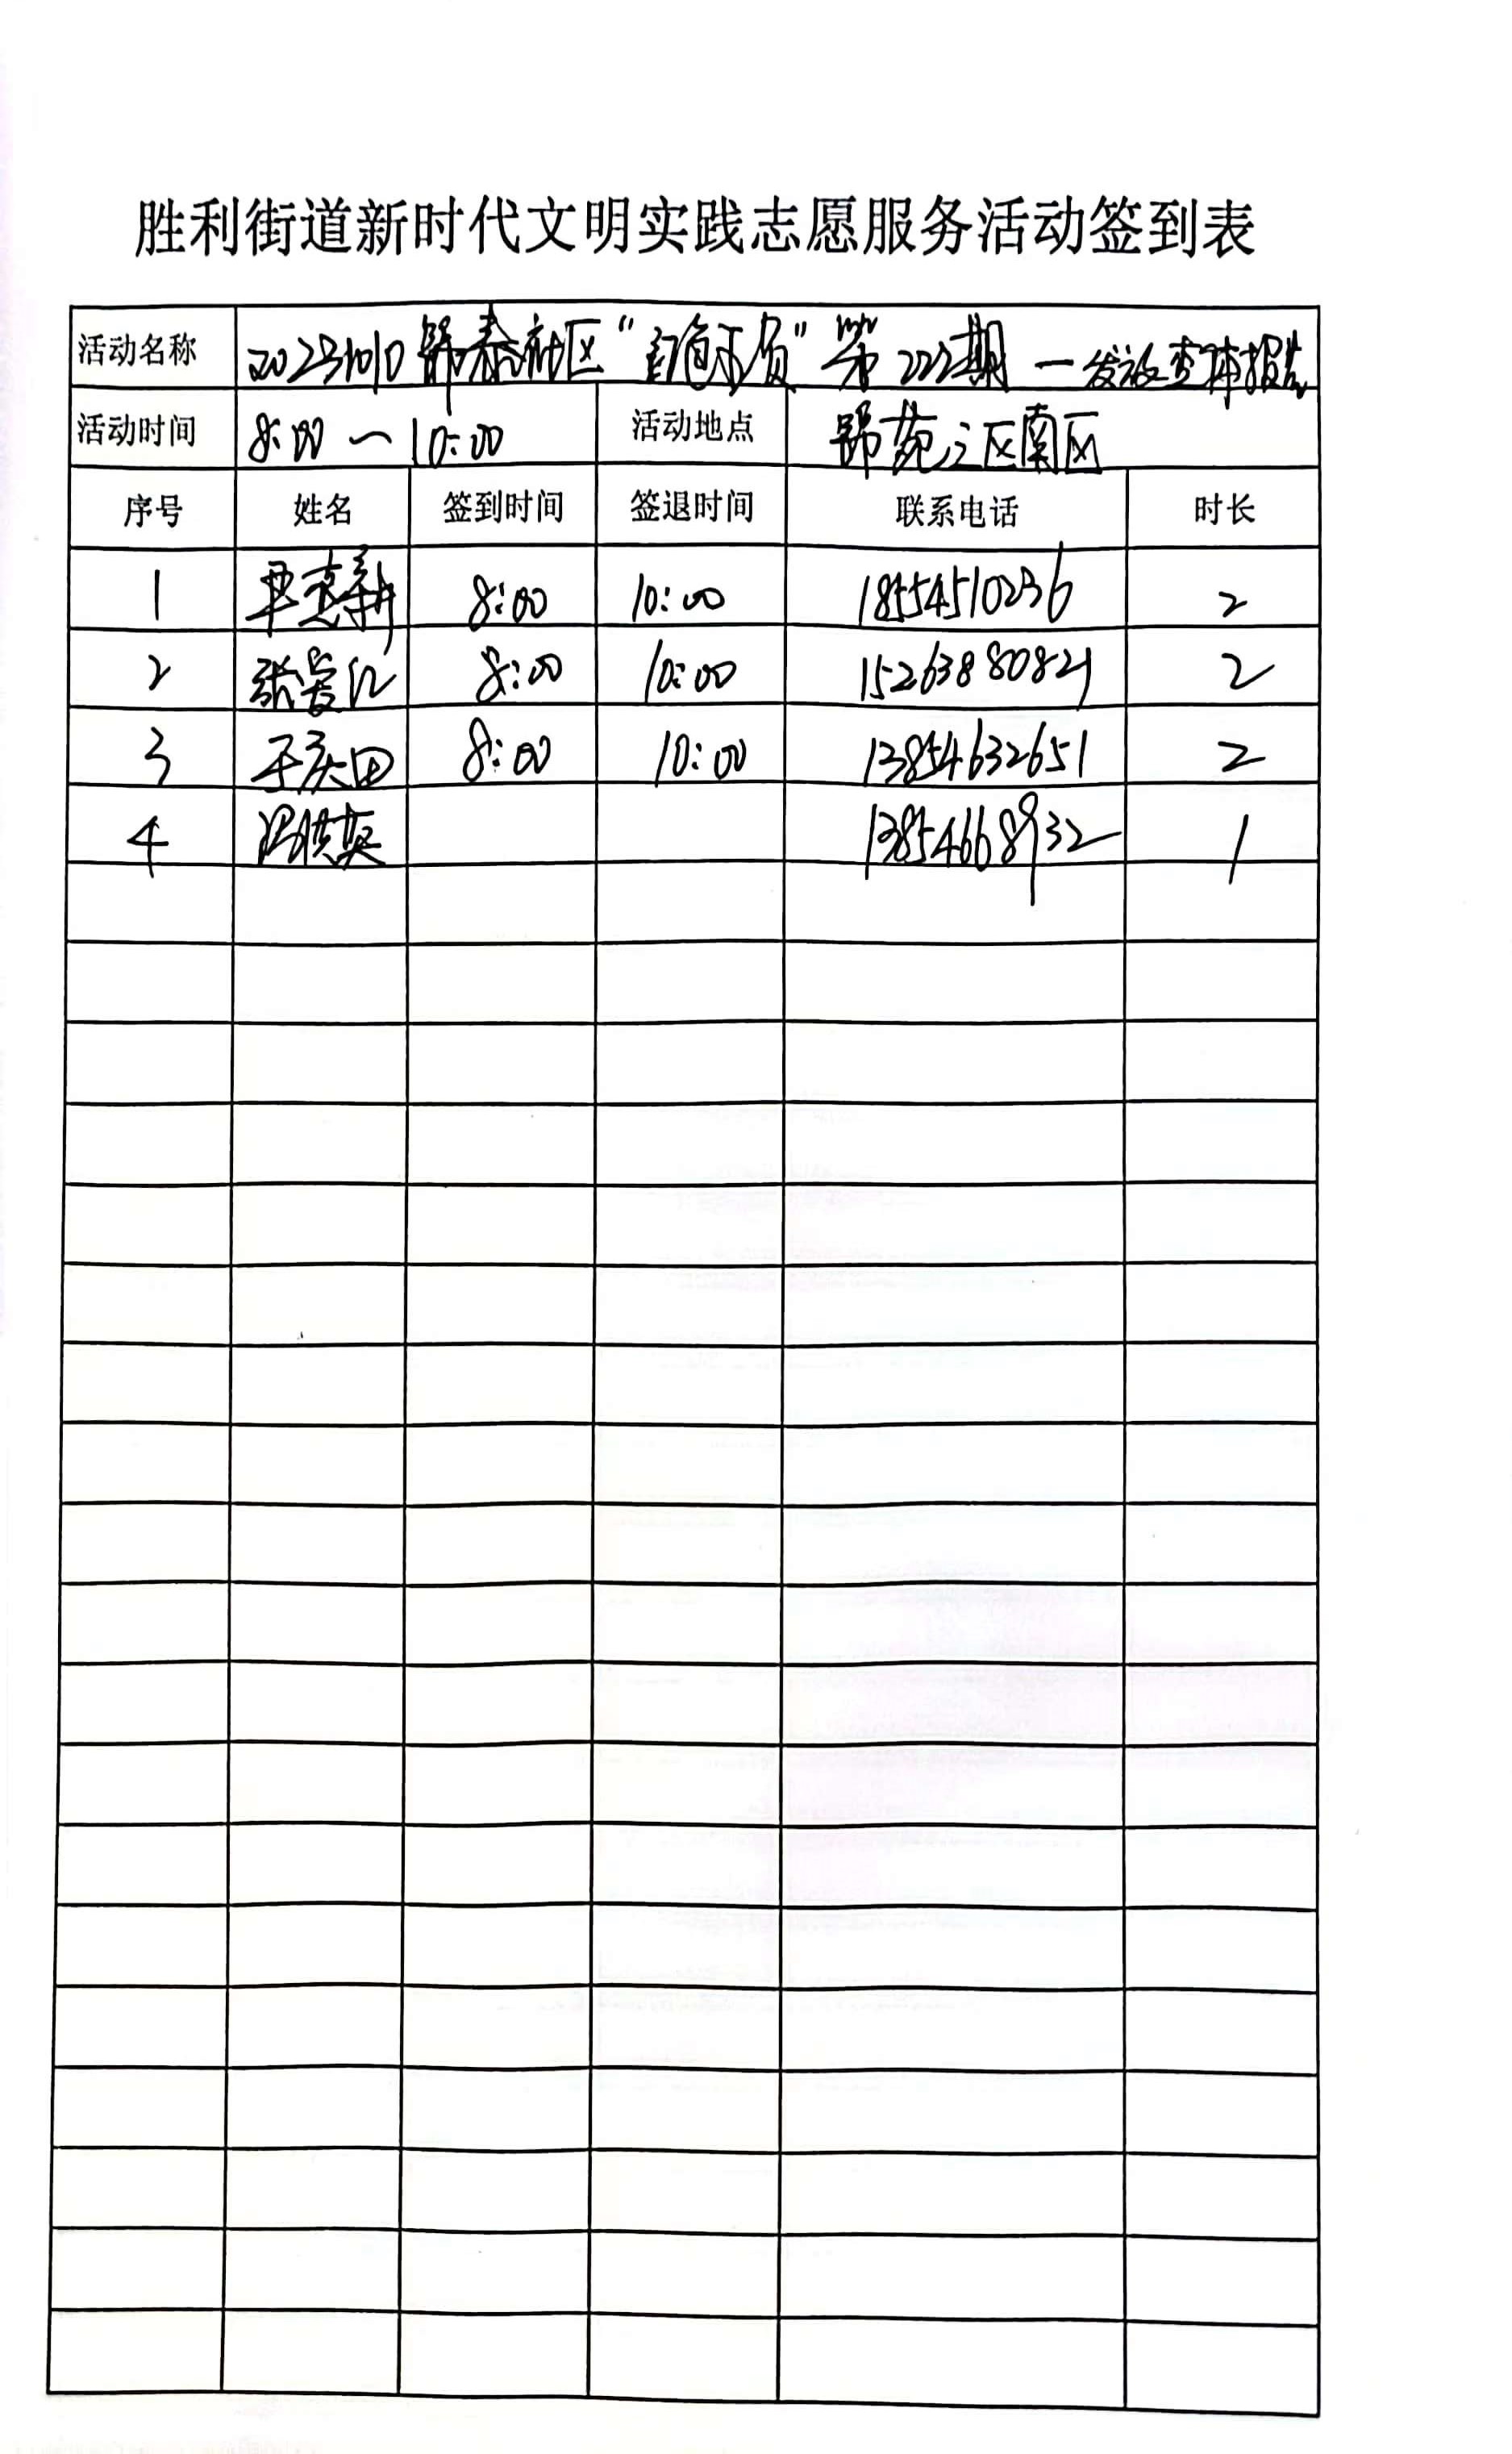 胜利街道新时代文明实践志愿服务活动签到表
活动名称 20231010 锦泰社区“ ” 第222期 一发放查体报告
活动时间 8:00～10:00 活动地点 锦苑三区南区
序号 姓名 签到时间 签退时间 联系电话 时长
1 8:00 10:00 18554510236 2
2 张 8:00 10:00 15263880821 2
3 于庆田 8:00 10:00 13854632651 2
4 英 13854668932 1